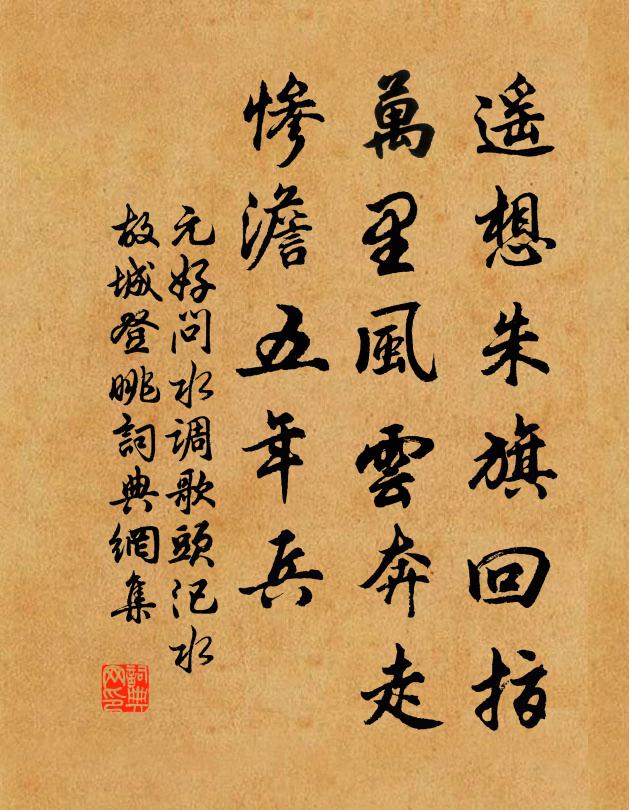 遥想朱旗回指
萬里風雲奔走
慘澹五年兵
元好问水调歌頭汜水
故城登眺詞典網集
詞典网印